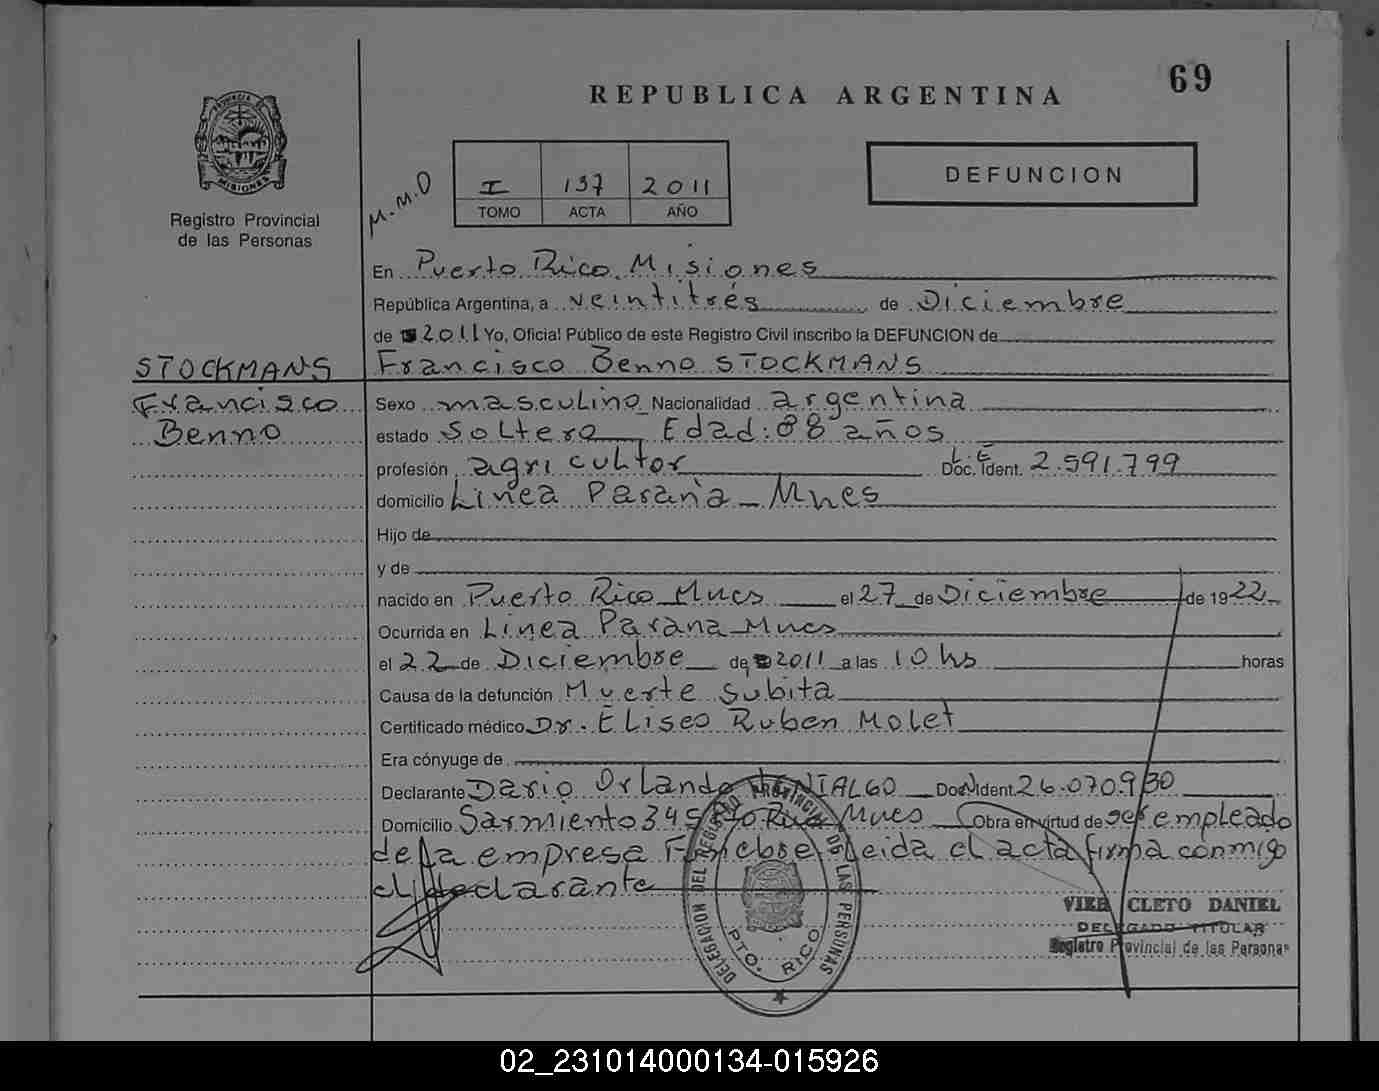 69
REPUBLICA ARGENTINA
PROVINCIA DE
MISIONES
Registro Provincial
de las Personas
M.M.O
I 137 2011
TOMO ACTA AÑO
DEFUNCION
En Puerto Rico. Misiones
República Argentina, a veintitrés de Diciembre
de 2011 Yo, Oficial Público de este Registro Civil inscribo la DEFUNCION de
STOCKMANS Francisco Benno STOCKMANS
Francisco Sexo masculino Nacionalidad argentina
Benno estado Soltero Edad: 88 años
profesión agricultor L.E Doc. Ident. 2.591.799
domicilio Linea Paraná - Mnes
Hijo de
y de
nacido en Puerto Rico Mnes el 27 de Diciembre de 1922
Ocurrida en Linea Parana Mnes
el 22 de Diciembre de 2011 a las 10 hs horas
Causa de la defunción Muerte subita
Certificado médico Dr. Eliseo Ruben Molet
Era cónyuge de
Declarante Dario Orlando Doc Ident. 26.070.930
Domicilio Sarmiento 345 Pto Rico Mnes Obra en virtud de ser empleado
de la empresa Funebre. Leida el acta firma conmigo
el declarante
DELEGACION DEL REGISTRO PROVINCIAL DE LAS PERSONAS
PTO. RICO
VIER CLETO DANIEL
DELEGADO TITULAR
Registro Provincial de las Personas
02_231014000134-015926